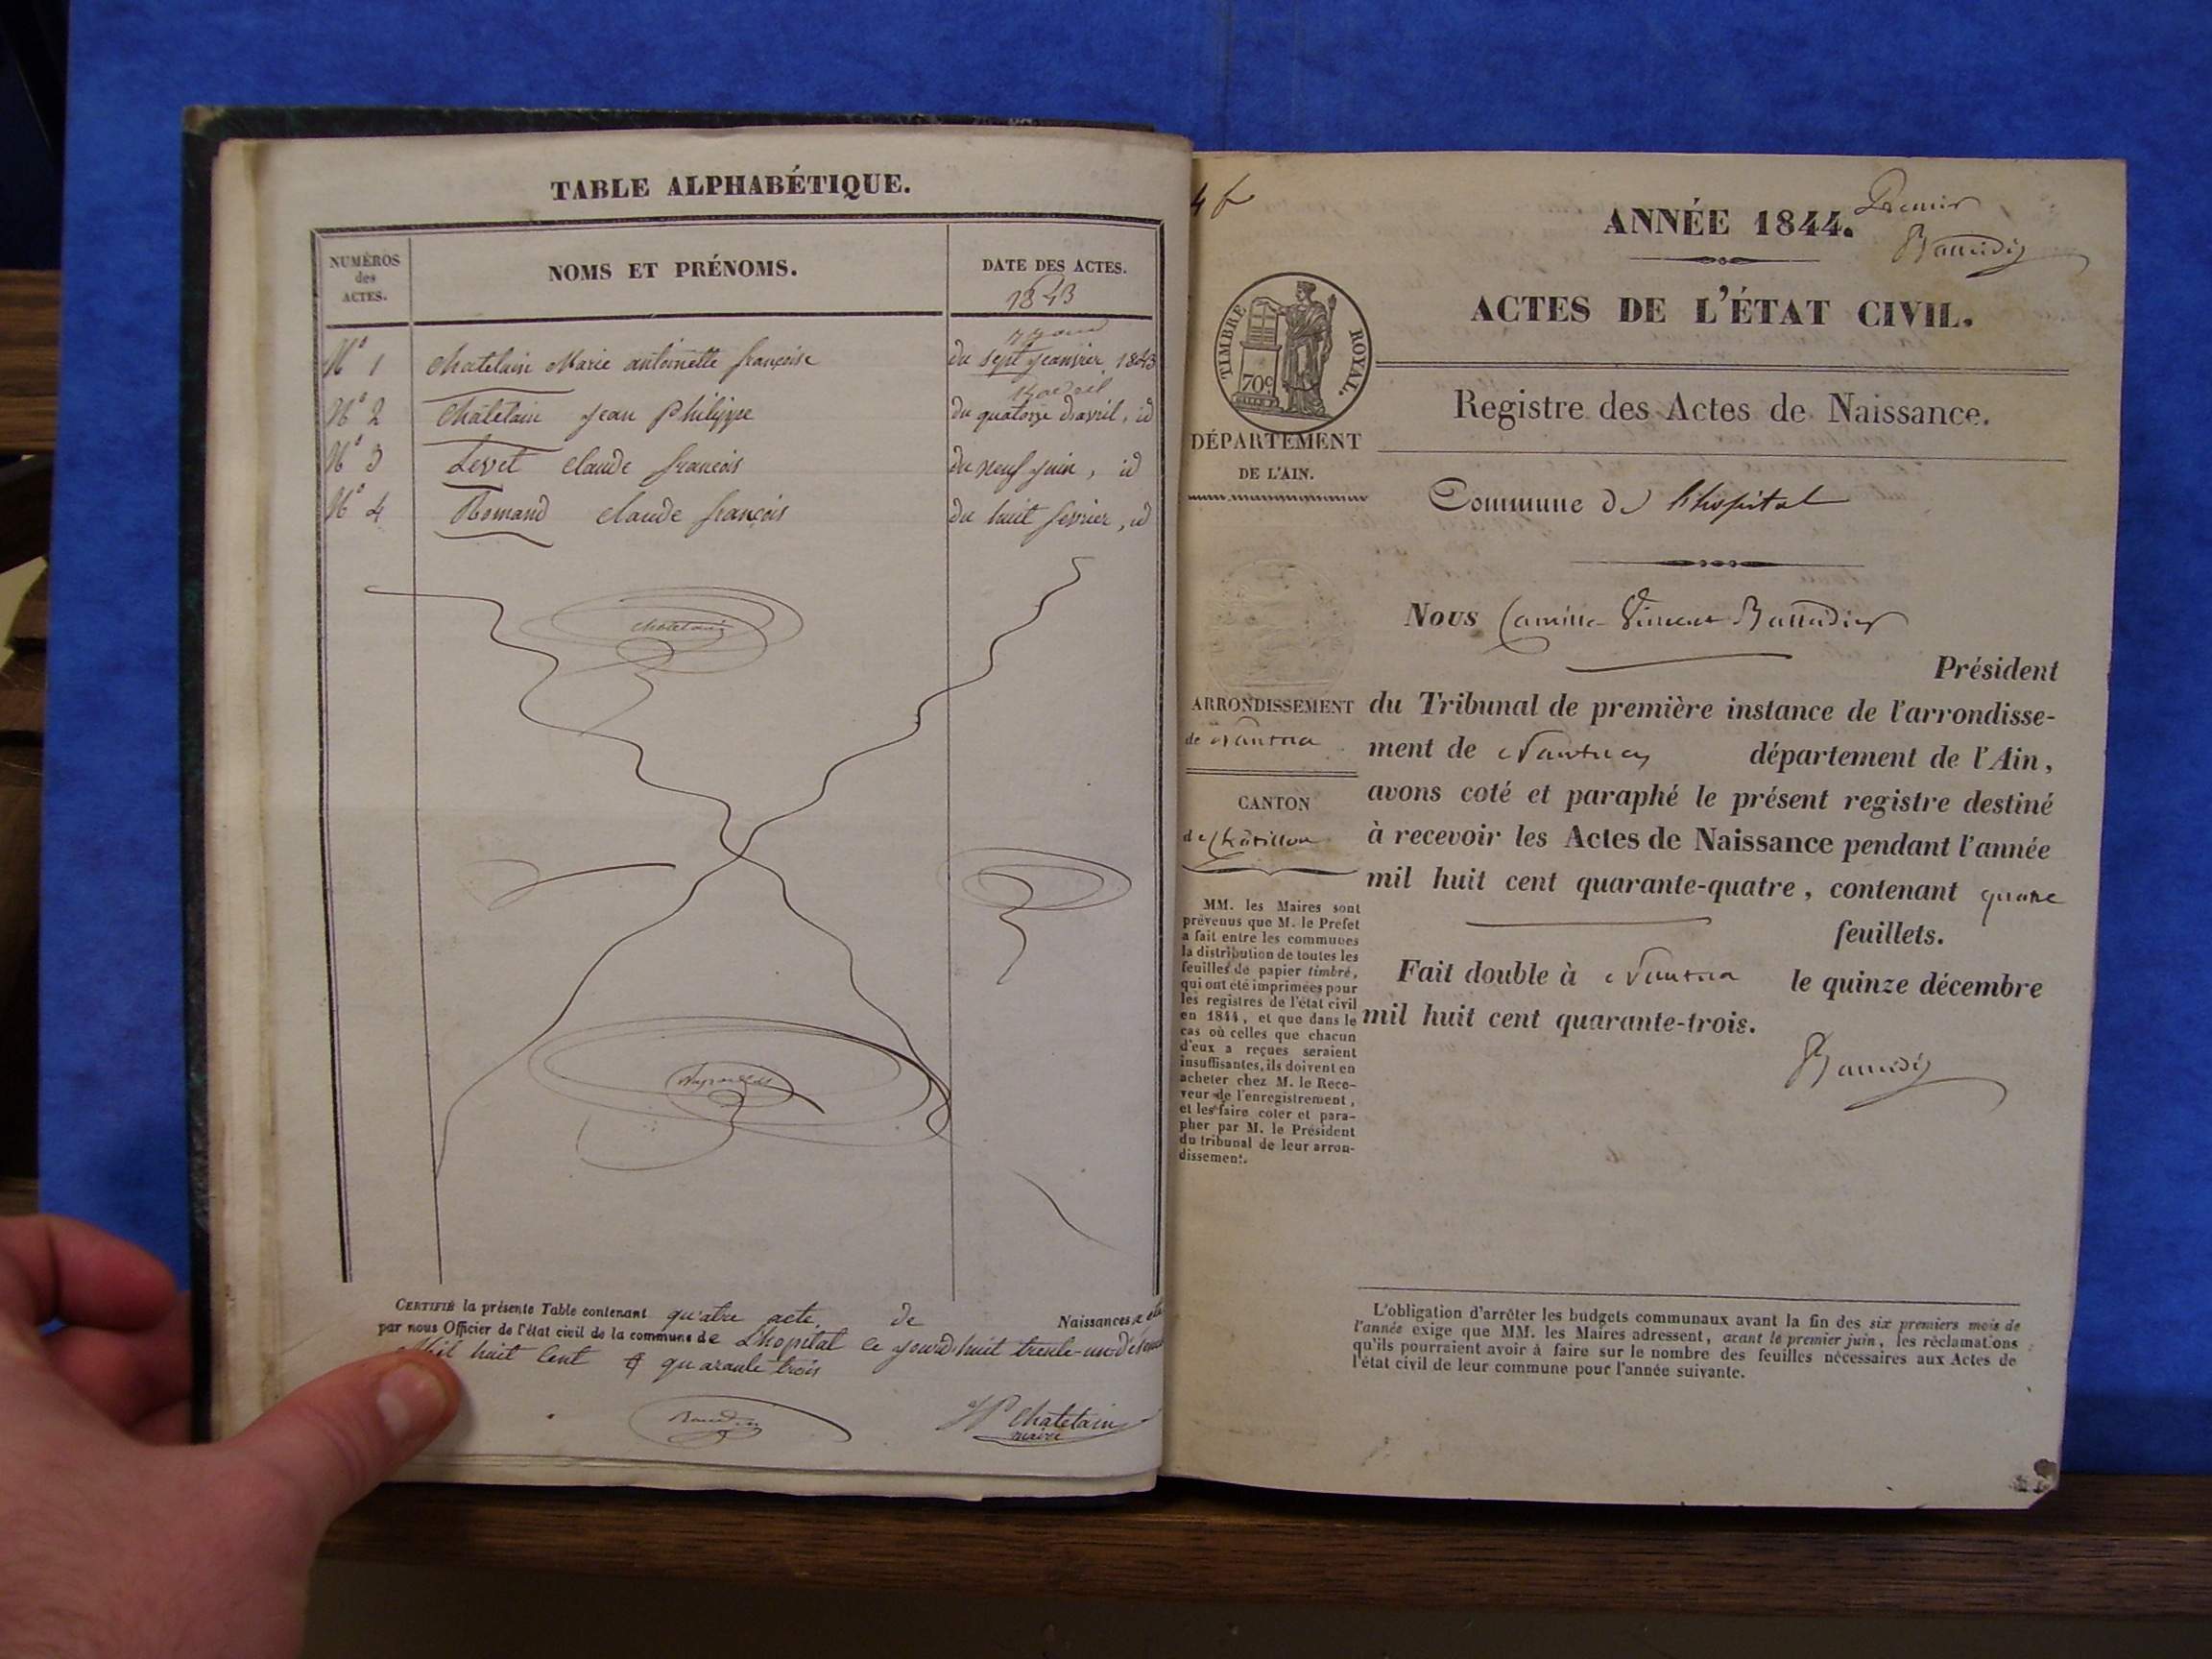 TABLE ALPHABÉTIQUE.
NUMÉROS des ACTES.
NOMS ET PRÉNOMS.
DATE DES ACTES.
1843
N° 1 Chatelain Marie antoinette françoise du sept jeanvier 1843
N° 2 Chatelain Jean Philippe du quatorze d'avril, id
N° 3 Levet Claude francois du neuf Juin, id
N° 4 Romand Claude françois du huit fevrier, id
chatelain
CERTIFIÉ la présente Table contenant quatre acte de Naissances
par nous Officier de l'état civil de la commune de L'hopital ce jourd'huit trente-un
Mil huit Cent quarante trois
JP Chatelain
maire
ANNÉE 1844.
Premier
ACTES DE L'ÉTAT CIVIL.
TIMBRE ROYAL.
70c
Registre des Actes de Naissance.
DÉPARTEMENT
DE L'AIN.
Commune de l'hopital
Nous Camille Vincent Baudier
Président
ARRONDISSEMENT
de Nantua
CANTON
de Châtillon
du Tribunal de première instance de l'arrondisse-
ment de Nantua département de l'Ain,
avons coté et paraphé le présent registre destiné
à recevoir les Actes de Naissance pendant l'année
mil huit cent quarante-quatre, contenant quatre
feuillets.
Fait double à Nantua le quinze décembre
mil huit cent quarante-trois.
MM. les Maires sont
prévenus que M. le Préfet
a fait entre les communes
la distribution de toutes les
feuilles de papier timbré,
qui ont été imprimées pour
les registres de l'état civil
en 1844, et que dans le
cas où celles que chacun
d'eux a reçues seraient
insuffisantes, ils doivent en
acheter chez M. le Rece-
veur de l'enregistrement,
et les faire coter et para-
pher par M. le Président
du tribunal de leur arron-
dissement.
L'obligation d'arrêter les budgets communaux avant la fin des six premiers mois de
l'année exige que MM. les Maires adressent, avant le premier juin, les réclamations
qu'ils pourraient avoir à faire sur le nombre des feuilles nécessaires aux Actes de
l'état civil de leur commune pour l'année suivante.